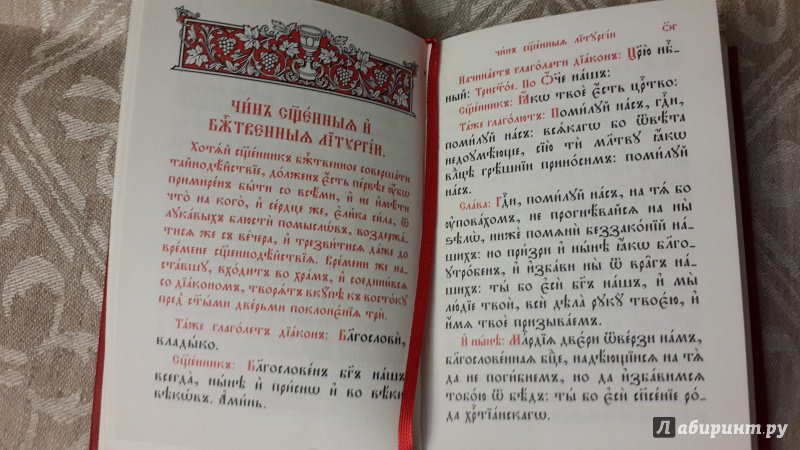 ЧИ́НЪ СЩ҃Е́ННЫЯ И҆
БЖ҃ТВЕННЫЯ ЛІТУРГІ́И.
Хотѧ́й сщ҃е́нникъ бж҃твенное соверша́ти
тайнодѣ́йствїе, до́лженъ є҆́сть пе́рвѣе ᲂу҆́бѡ
примире́нъ бы́ти со всѣ́ми, и҆ не и҆мѣ́ти
что̀ на кого̀, и҆ се́рдце же, є҆ли́ка си́ла, ѿ
лꙋка́выхъ блюстѝ по́мыслѡвъ, воздержа́-
тисѧ же съ ве́чера, и҆ трезви́тисѧ да́же до
вре́мене сщ҃еннодѣ́йствїѧ. Вре́мени же на-
ста́вшꙋ, вхо́дитъ во хра́мъ, и҆ соедини́всѧ
со дїа́кономъ, творѧ́тъ вкꙋ́пѣ къ восто́кꙋ
пред̾ ст҃ы́ми две́рьми поклонє́нїѧ трѝ.
Та́же глаго́летъ дїа́конъ: Благословѝ,
влады́ко.
Сщ҃е́нникъ: Благослове́нъ бг҃ъ на́шъ
всегда̀, ны́нѣ и҆ при́снѡ и҆ во вѣ́ки
вѣкѡ́въ. А҆ми́нь.
ЧИ́НЪ СЩ҃Е́ННЫЯ ЛІТУРГІ́И ѻ҃г
Начина́етъ глаго́лати дїа́конъ: Цр҃ю̀ нб҃-
ный: Трист҃о́е. По Ѻ҆́ч҃е на́шъ:
Сщ҃е́нникъ: Ꙗ҆́кѡ твоѐ є҆́сть ца́рство:
Та́же глаго́лютъ: Поми́лꙋй на́съ, гд҇и,
поми́лꙋй на́съ: всѧ́кагѡ бо ѿвѣ́та
недоꙋмѣ́юще, сїю́ ти мл҃твꙋ ꙗ҆́кѡ
влⷣцѣ грѣ́шнїи прино́симъ: поми́лꙋй
на́съ.
Сла́ва: Гд҇и, поми́лꙋй на́съ, на тѧ́ бо
ᲂу҆пова́хомъ, не прогнѣ́вайсѧ на ны̀
ѕѣлѡ̀, нижѐ помѧнѝ беззако́нїй на́-
шихъ: но при́зри и҆ ны́нѣ ꙗ҆́кѡ благ-
оутро́бенъ, и҆ и҆зба́ви ны̀ ѿ вра̑гъ на́-
шихъ: ты́ бо є҆сѝ бг҃ъ на́шъ, и҆ мы̀
лю́дїе твоѝ, всѝ дѣла̀ рꙋкꙋ̀ твоє́ю, и҆
и҆́мѧ твоѐ призыва́емъ.
И҆ ны́нѣ: Млⷭ҇рдїѧ двє́ри ѿве́рзи на́мъ,
благослове́ннаѧ бц҃е, надѣ́ющїисѧ на тѧ̀
да не поги́бнемъ, но да и҆зба́вимсѧ
тобо́ю ѿ бѣ́дъ: ты́ бо є҆сѝ сп҃се́нїе ро́-
да хрⷭ҇тїа́нскагѡ.
Лабиринт.ру